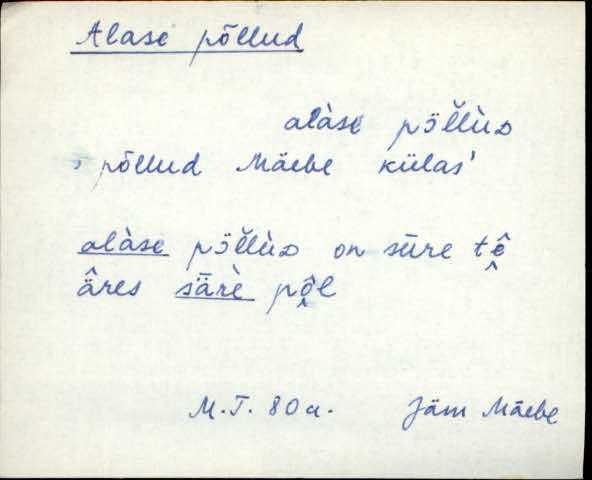 Alase põllud
alàse pɔ̈l̆lùᴅ
, põllud Mäebe külas'
alàse pɔ̈l̆lùᴅ on sūre tê̬
ä̂res sǟrè pô̬l
M.T. 80 a. Jäm Mäebe